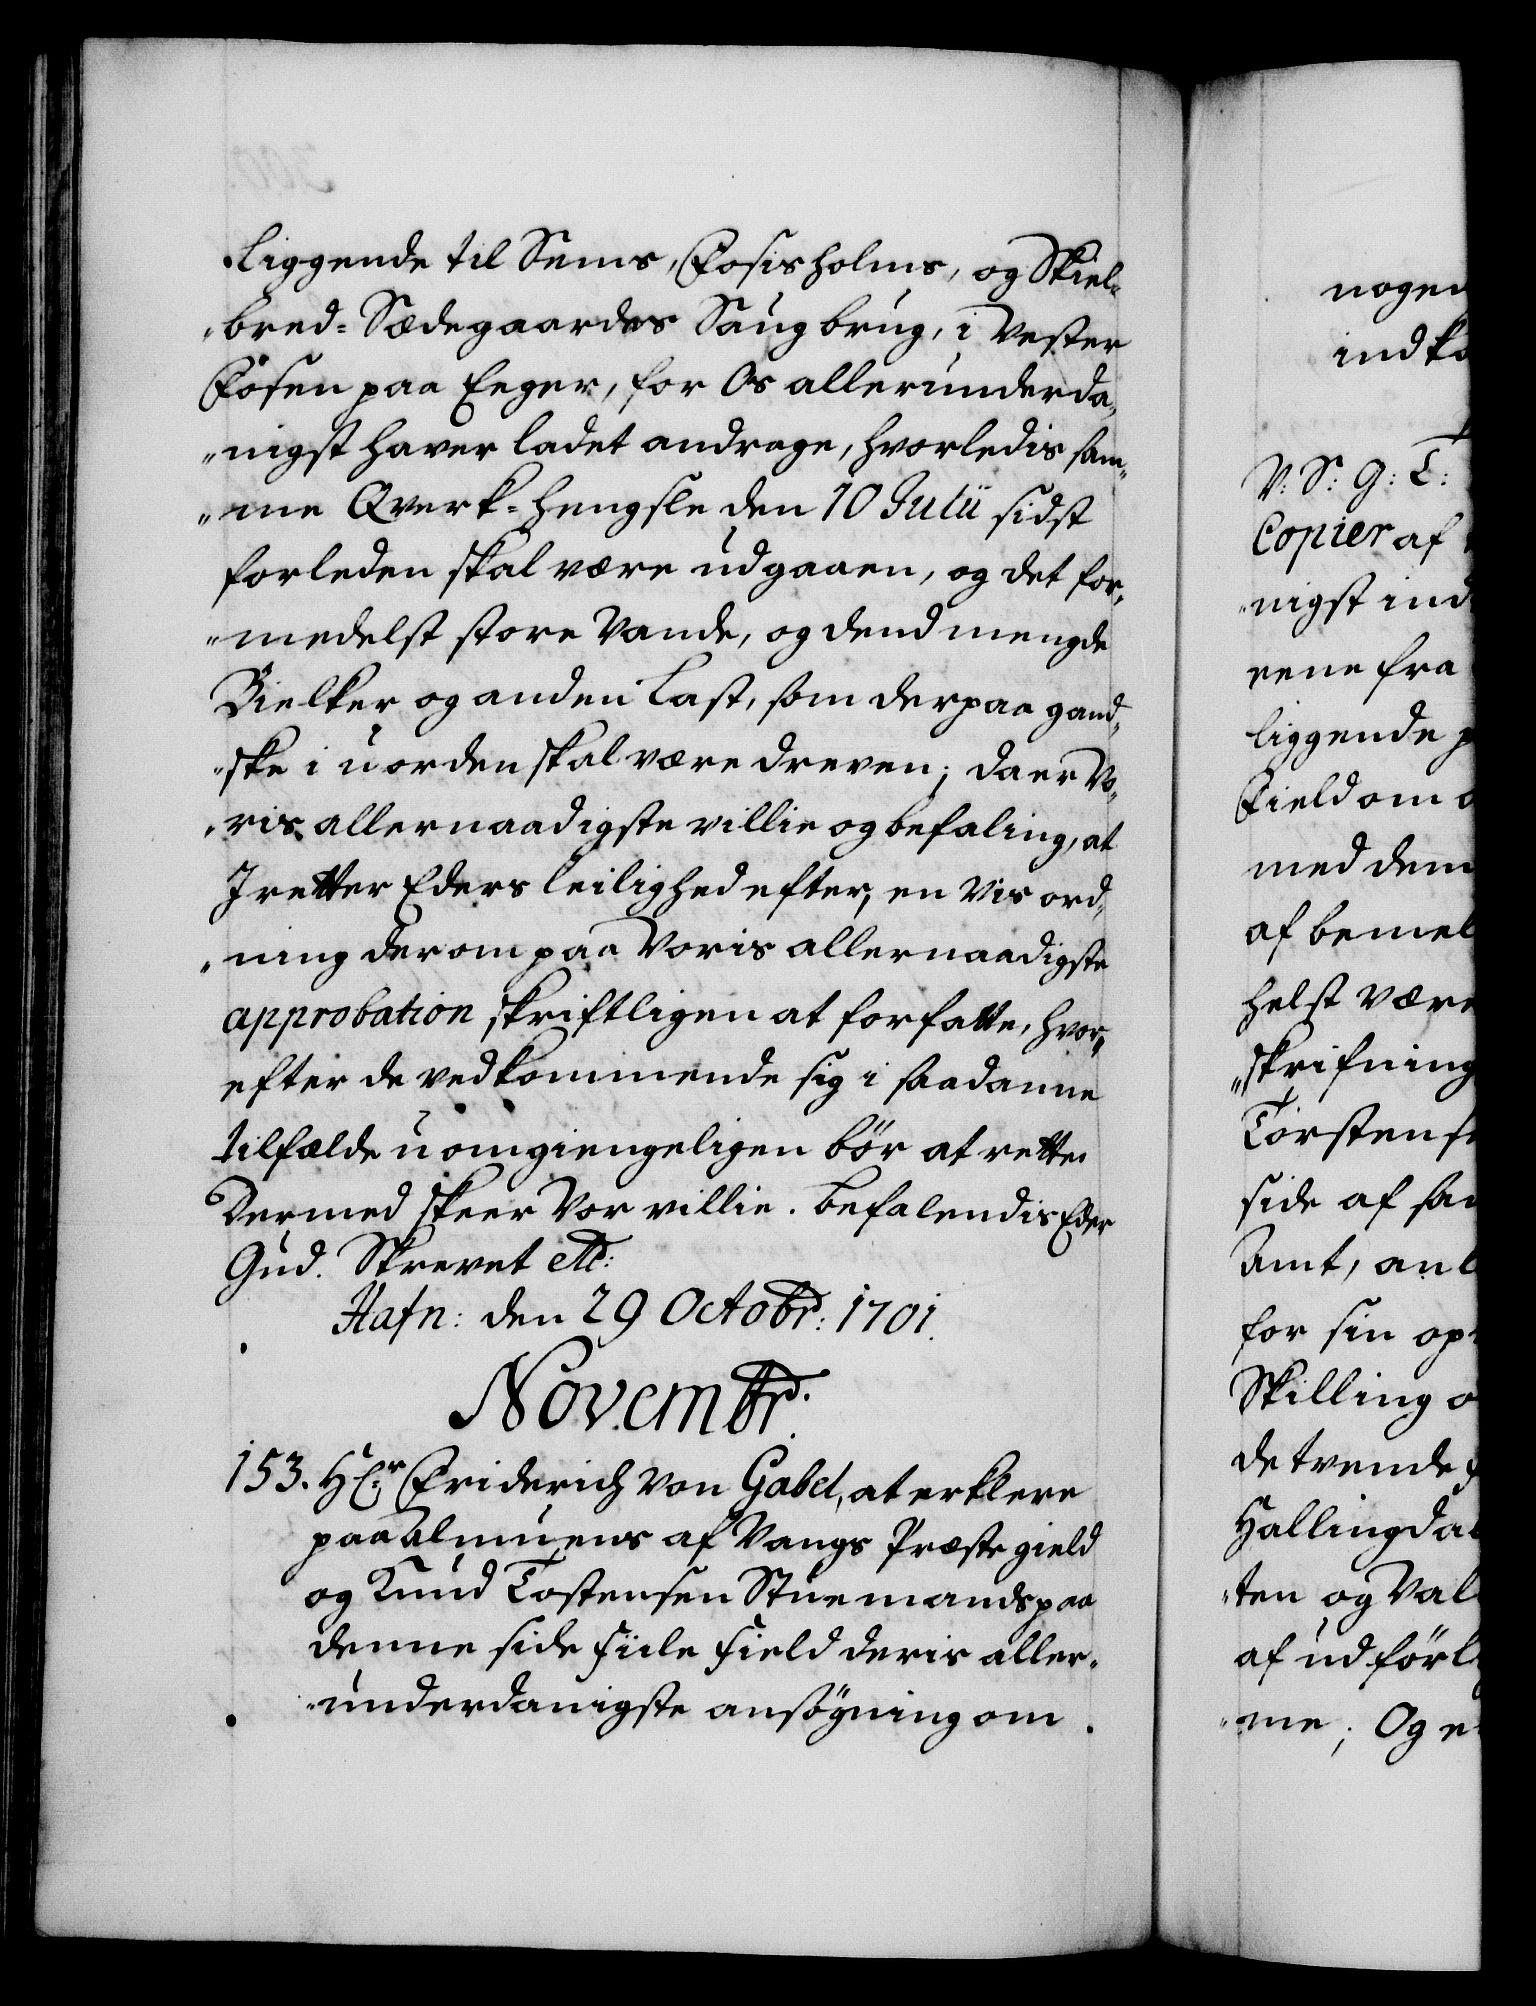 liggende til Sems, Fosisholms, og Skiel-
"bred= Sædegaardes Saugbrug, i Vester
Fosen paa Eeger, for Os allerunderda,
"nigst haver ladet andrage, hvorledis sam,
"me Qverk=hengsle den 10 Julii sidst
forleden skal være udgaaen, og det for,
"medelst store Vande, og dend mengde
Bielker og anden Last, som derpaa gand,
"ske i uorden skal være dreven; da er Vo,
"ris allernaadigste villie og befaling, at
I retter Eders leilighed efter, en vis ord,
"ning derom paa Voris allernaadigste
approbation skriftligen at forfatte, hvor,
efter de vedkommende sig i saadanne
tilfælde uomgiengeligen bör at rette.
Dermed skeer Vor villie. Befalendis Eder
Gud. Skrevet etc:
Hafn: den 29 Octobr: 1701.
Novembr:
153. Hr. Friderich Von Gabel, at erklere
paa Almuens af Vangs Præstegield
og Knud Tostensen Stuemands paa
denne side Fiile Field deris aller-
"underdanigste ansögning om
nogen
indko
V: S: G: T:
Copier af
"nigst ind
eene fra
liggende p
Field om o
med dem
af bemel
helst være
"skrifning
Torstense
side af sa
Amt, anl
for sin op
Skilling o
de tvende f
Hallingdal
"ten og Val
af udförl
"me; Og e